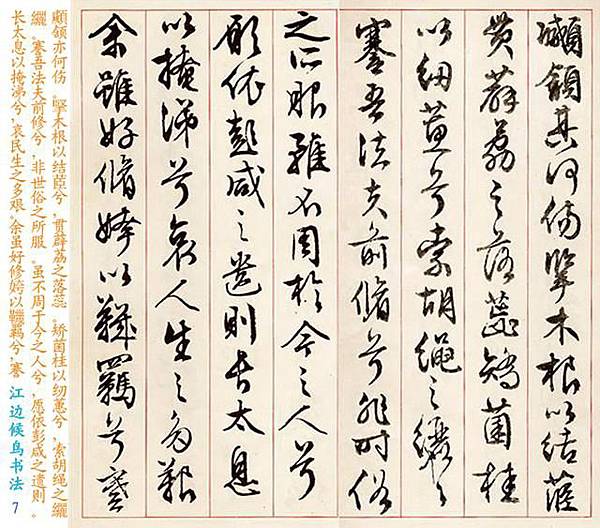 顑頷其何傷擥木根以結茝
貫薜荔之落蕊矯菌桂
以紉蕙兮索胡繩之纚々
謇吾法夫前脩兮非時俗
之所服雖不周於今之人兮
願依彭咸之遺則長太息
以掩涕兮哀人生之多艱
余雖好脩姱以鞿羈兮謇
顑颔亦何伤。擥木根以结茝兮，贯薜荔之落蕊。矫菌桂以纫蕙兮，索胡绳之纚
纚。謇吾法夫前修兮，非世俗之所服。虽不周于今之人兮，愿依彭咸之遗则。
长太息以掩涕兮，哀民生之多艰。余虽好修姱以鞿羁兮，謇 江边候鸟书法 7